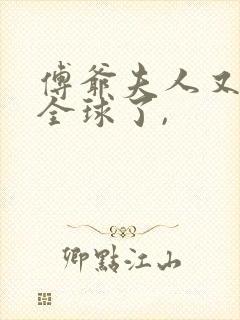 傅爺夫人又
全球了,
卿點江山